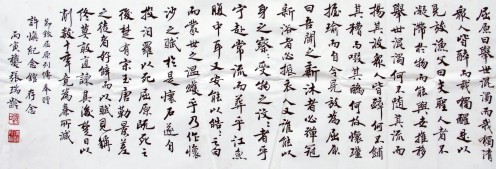 屈原曰舉世混濁而我獨清
眾人皆醉而我獨醒是以
見放漁父曰夫聖人者不
凝滯於物而能與世推移
舉世混濁何不隨其流而
揚其波眾人皆醉何不餔
其糟而啜其醨何故懷瑾
握瑜而自令見放為屈原
曰吾聞之新沐者必彈冠
新浴者必振衣人又誰能以
身之察察受物之汶汶者乎
寧赴常流而葬乎江魚
腹中耳又安能以皓皓之白
而蒙世之溫蠖乎乃作懷
沙之賦於是懷石遂自
投汨羅以死屈原既死之
後楚有宋玉唐勒景差
之徒者好辭而以賦見稱
終莫敢直諫其後楚日以
削數十年竟為秦所滅
節錄屈原列傳奉贈
許慎紀念館存念
丙寅夏張瑞齡